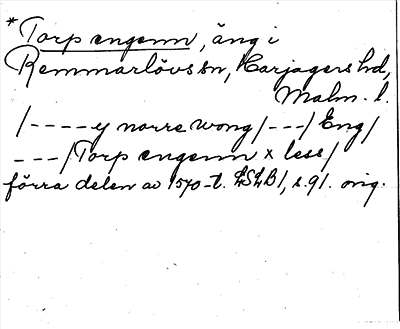 *Torp engenn, äng i
Remmarlövs sn, Harjagers hd,
Malm. l.
/----y norre wong/---/Eng/
---/Torp engenn x less/
förra delen av 1570-t. LSLB1, s.91. orig.